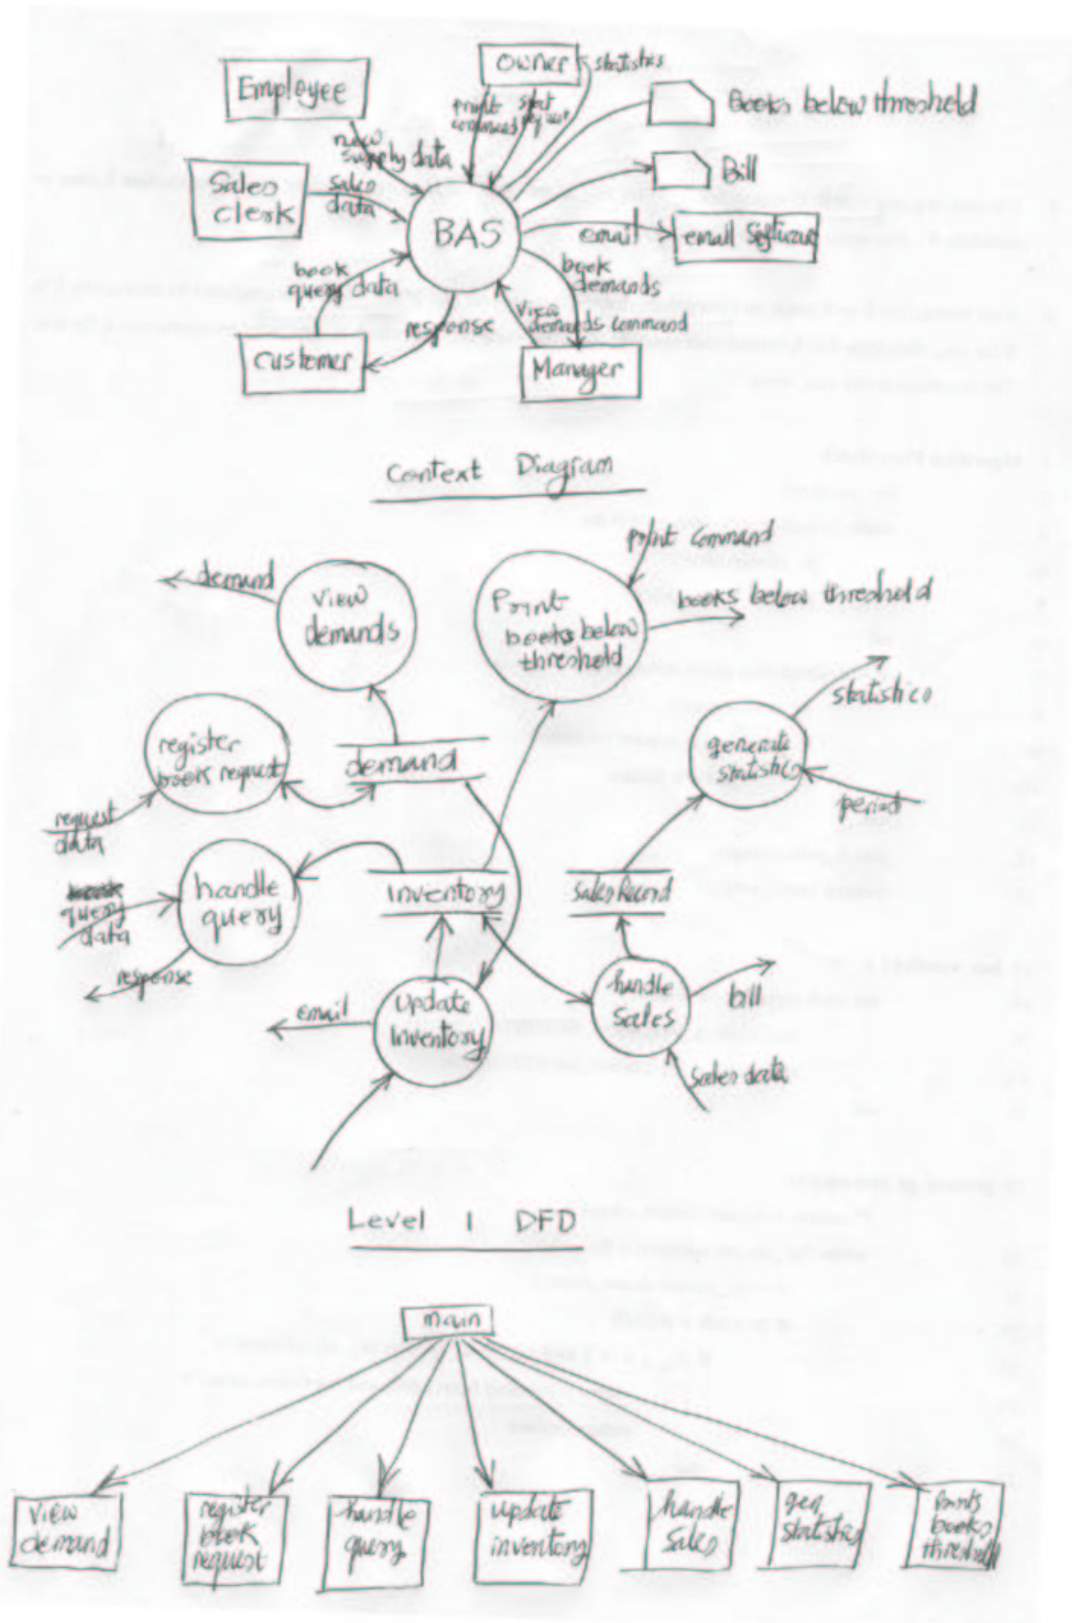 Owner
statistics
Employee
print
command
stat
request
Books below threshold
new
supply data
Sales
clerk
sales
data
Bill
BAS
email
email Software
book
query data
book
demands
response
view
demands command
Customer
Manager
Context Diagram
print command
demand
view
demands
Print
books below
threshold
books below threshold
statistics
register
book request
demand
generate
statistics
period
request
data
handle
query
inventory
Sales Record
query
data
response
email
update
inventory
handle
sales
bill
Sales data
Level 1 DFD
main
view
demand
register
book
request
handle
query
update
inventory
handle
sales
gen
statistics
books
threshold